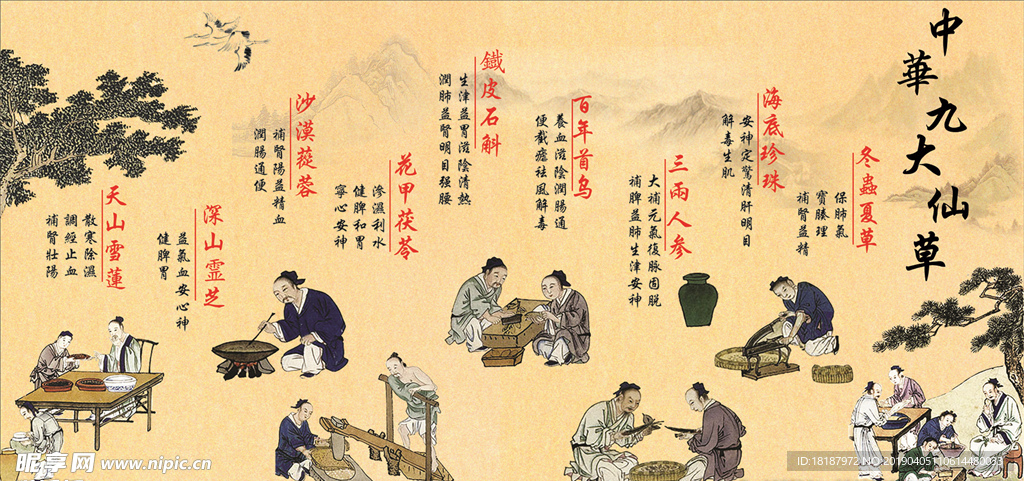 中華九大仙草
冬蟲夏草
保肺氣
實腠理
補腎益精
海底珍珠
安神定驚清肝明目
解毒生肌
三兩人參
大補元氣復脉固脱
補脾益肺生津安神
百年首乌
養血滋陰潤腸通
便截瘧祛風解毒
鐵皮石斛
生津益胃滋陰清熱
潤肺益腎明目强腰
花甲茯苓
滲濕利水
健脾和胃
寧心安神
沙漠蓯蓉
補腎陽益精血
潤腸通便
深山霊芝
益氣血安心神
健脾胃
天山雪蓮
散寒除濕
調經止血
補腎壯陽
昵享网 www.nipic.cn
ID:18187972 NO:20190405110614480033